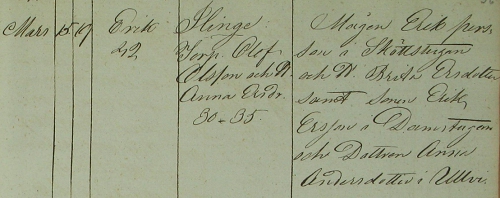 Mars 15 19 Erik Ilinge:
22 Torp. Olof
Olsson och H.
Anna Ersdr.
30 - 35.
Mågen Erik Pers-
son i Skottstugan
och H. Brita Ersdotter
samt Sonen Erik
Ersson i Damstugan
och Dottren Anna
Andersdotter i Ullvi.